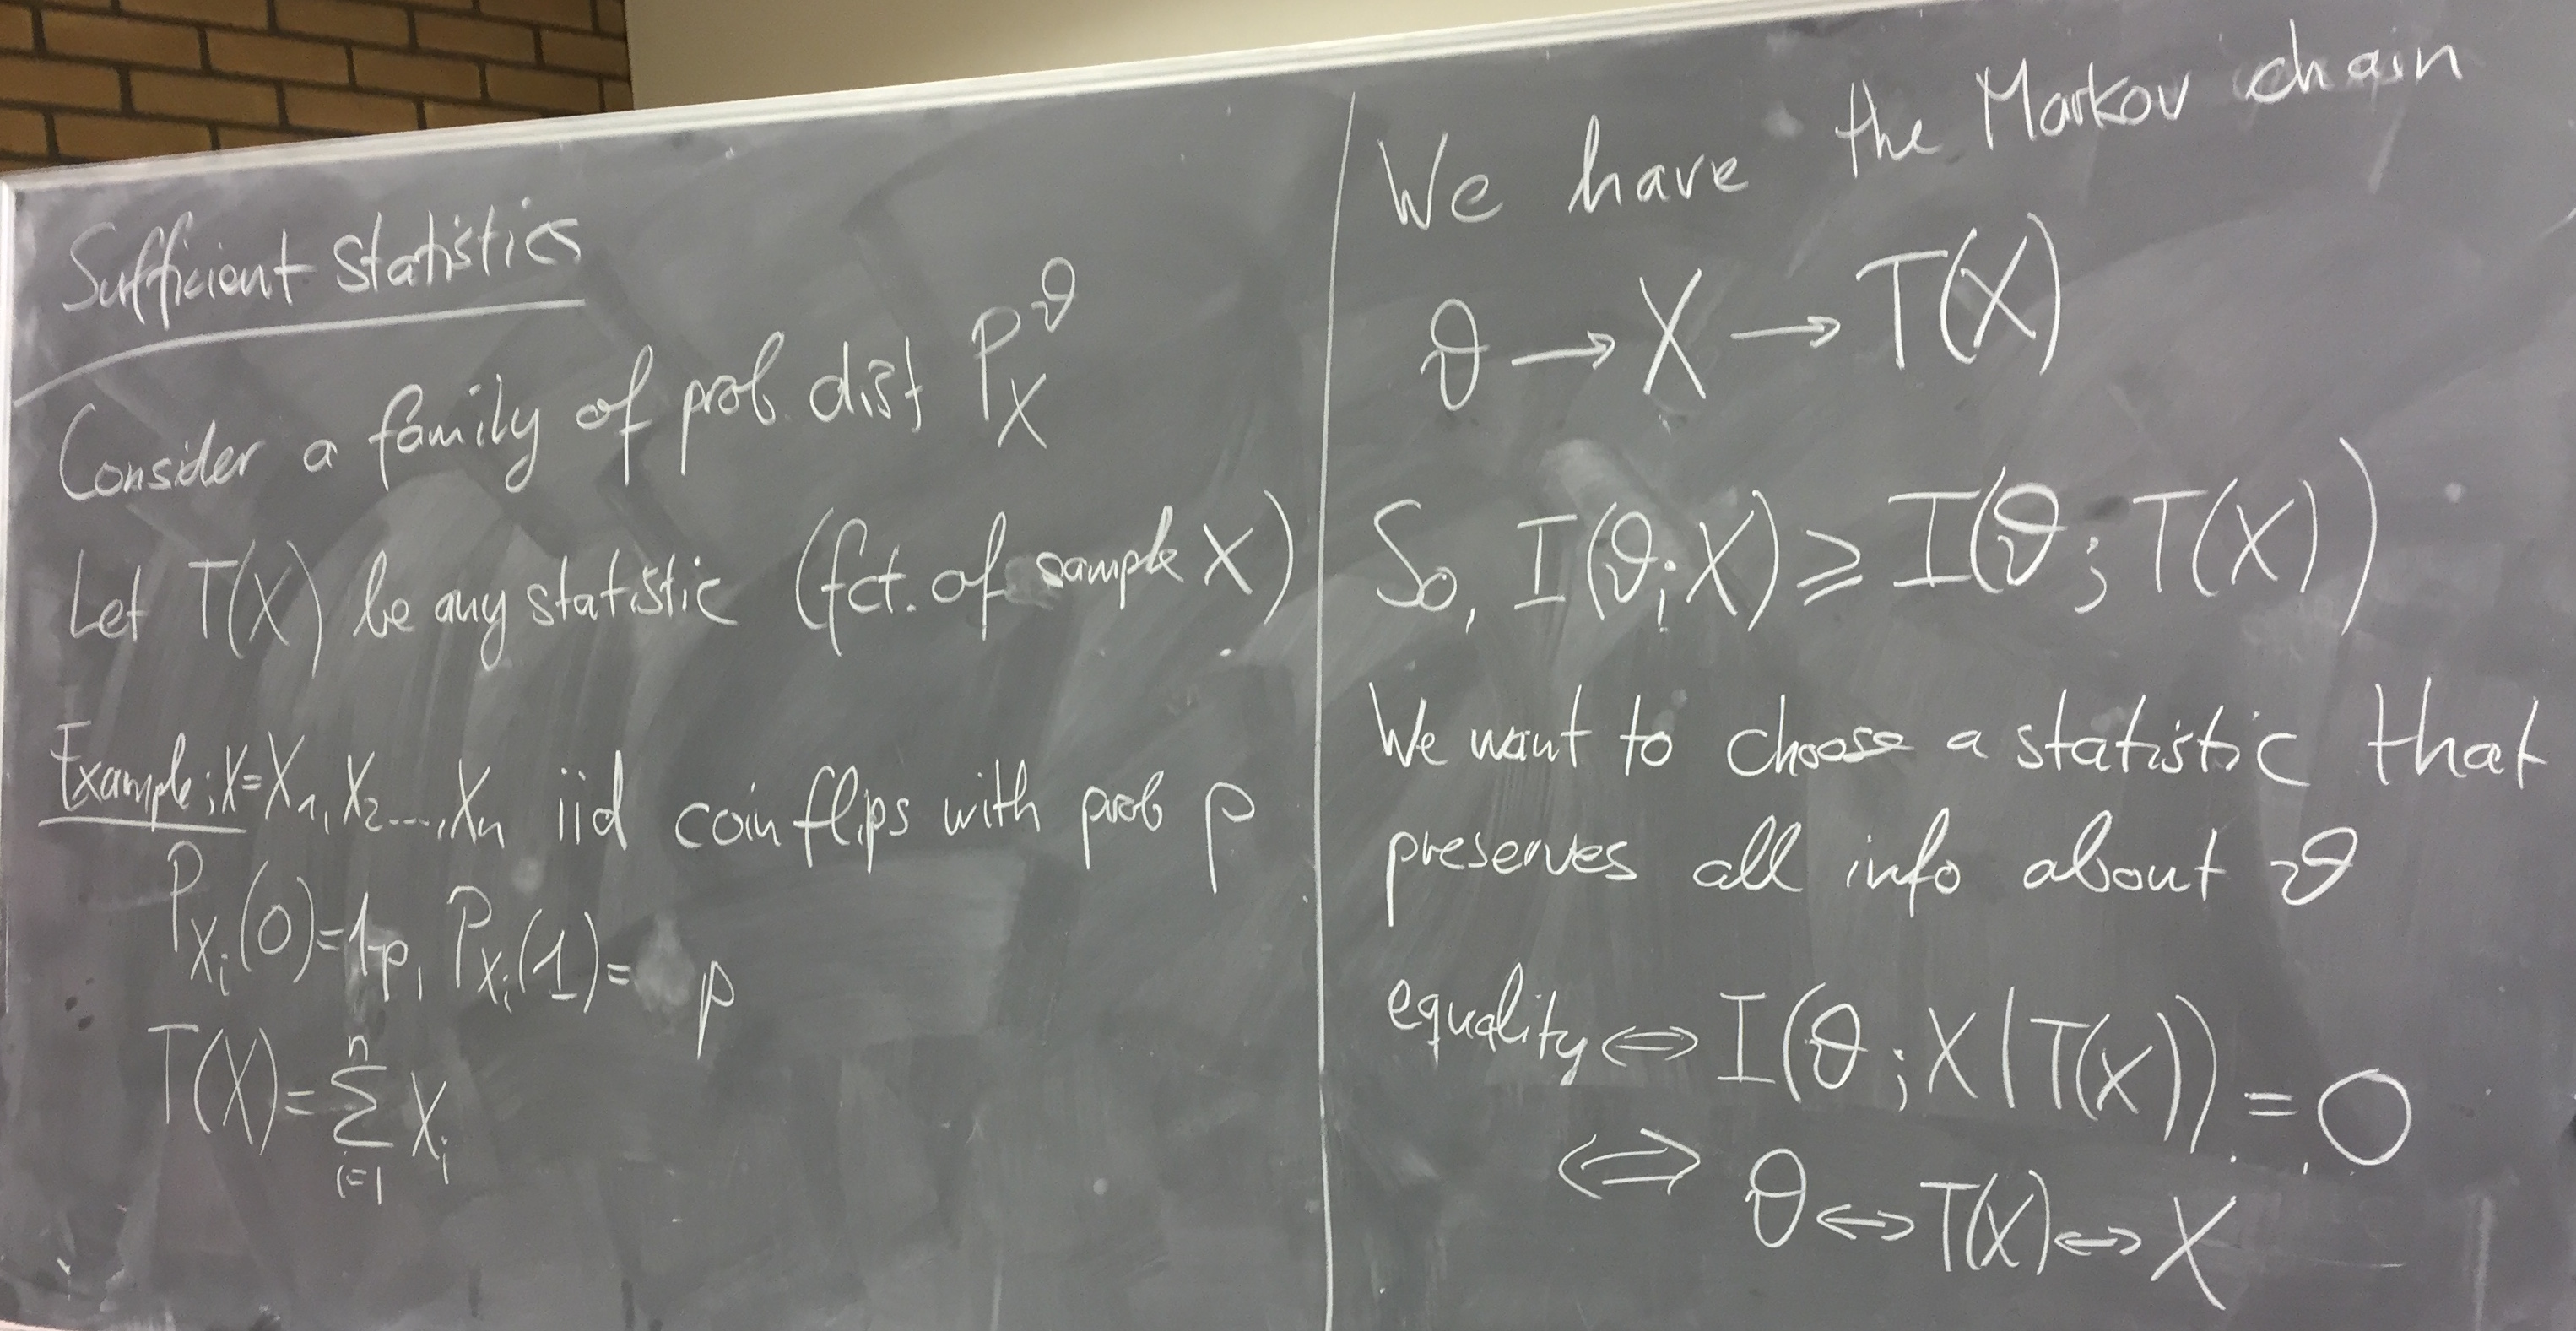 Sufficient statistics
Consider a family of prob. dist P_X^ϑ
Let T(X) be any statistic (fct. of sample X)
Example: X=X_1, X_2..., X_n iid coin flips with prob p
P_{X_i}(0)=1-p, P_{X_i}(1)= p
T(X)=∑_{i=1}^n X_i
We have the Markov chain
ϑ → X → T(X)
So, I(ϑ;X) ⩾ I(ϑ;T(X))
We want to choose a statistic that
preserves all info about ϑ
equality ⇔ I(ϑ;X|T(X)) = 0
⇔ ϑ ↔ T(X) ↔ X